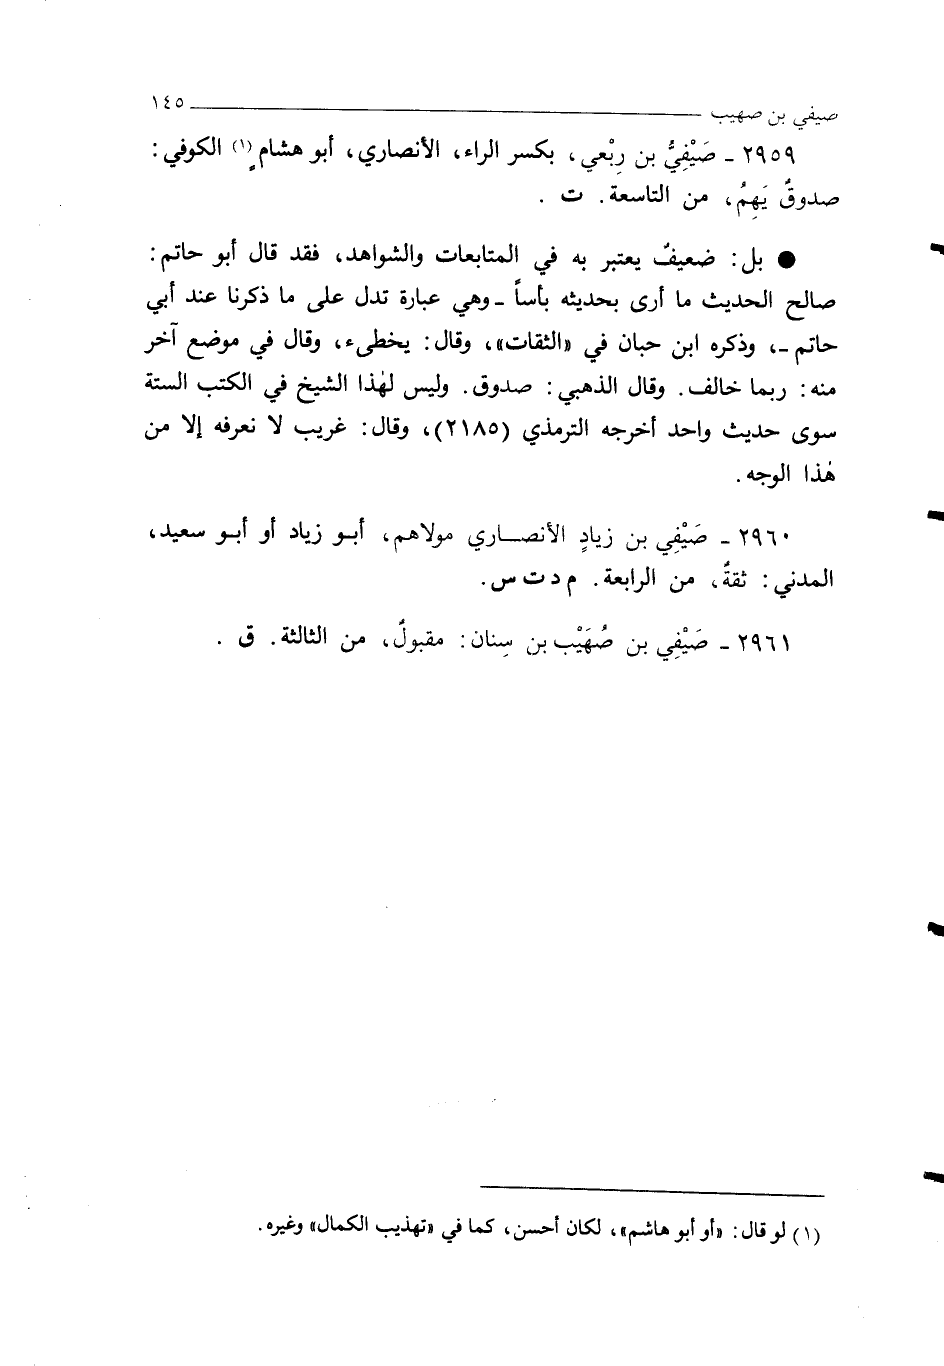 صيفي بن صهيب ١٤٥
٢٩٥٩ ـ صَيْفِيُّ بن رِبْعي، بكسر الراء، الأنصاري، أبو هشامٍ(١) الكوفي:
صدوقٌ يَهِمُ، من التاسعة. ت .
● بل: ضعيفٌ يعتبر به في المتابعات والشواهد، فقد قال أبو حاتم:
صالح الحديث ما أرى بحديثه بأساً ـ وهي عبارة تدل على ما ذكرنا عند أبي
حاتم ـ، وذكره ابن حبان في «الثقات»، وقال: يخطىء، وقال في موضع آخر
منه: ربما خالف. وقال الذهبي: صدوق. وليس لهٰذا الشيخ في الكتب الستة
سوى حديث واحد أخرجه الترمذي (٢١٨٥)، وقال: غريب لا نعرفه إلا من
هٰذا الوجه.
٢٩٦٠ ـ صَيْفِي بن زيادٍ الأنصـاري مولاهم، أبـو زياد أو أبـو سعيد،
المدني: ثقةٌ، من الرابعة. م د ت س.
٢٩٦١ ـ صَيْفِي بن صُهَيْب بن سِنان: مقبولٌ، من الثالثة. ق .
(١) لو قال: «أو أبو هاشم»، لكان أحسن، كما في «تهذيب الكمال» وغيره.